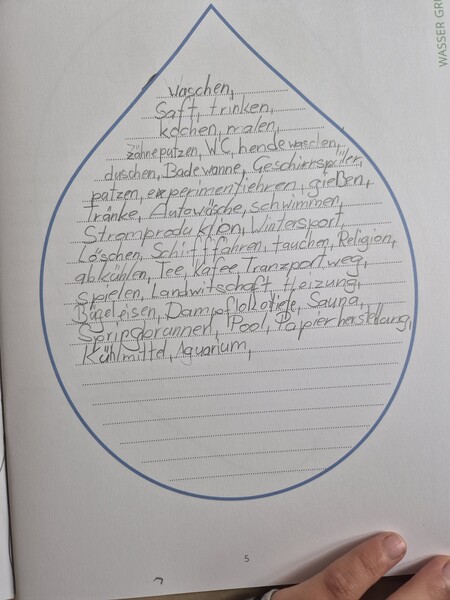 WASSER GR
waschen,
Saft, trinken,
kochen, malen,
zähneputzen, WC, hende waschen,
duschen, Badewanne, Geschirrspüler,
putzen, experimentiehren, gießen,
Tränke, Autowäsche, schwimmen,
Stromproduktion, Wintersport,
Löschen, Schifffahren, tauchen, Religion,
abkühlen, Tee, Kafee, Tranzportweg,
spielen, Landwirtschaft, Heizung,
Bügeleisen, Dampflokotiefe, Sauna,
Springbrunnen, Pool, Papierherstellung,
Kühlmittel, Aquarium,
5